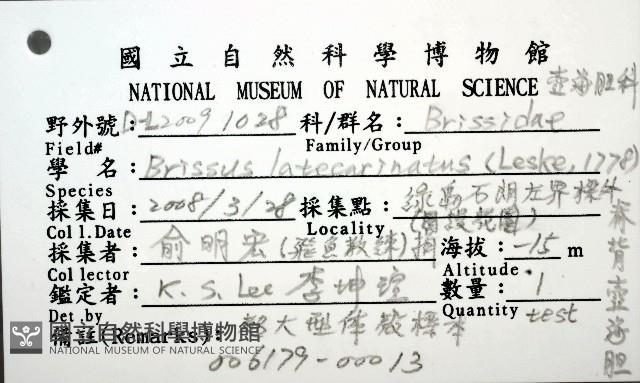 國立自然科學博物館
NATIONAL MUSEUM OF NATURAL SCIENCE 壺海胆科
野外號: 20091028 科/群名: Brissidae
Field# Family/Group
學 名: Brissus latecarinatus (Leske, 1778)
Species
採集日: 2008/3/28 採集點: 綠島石朗左界標外
Coll.Date Locality
採集者: 俞明宏(飛魚教練)捐 海拔: -15 m
Collector Altitude
鑑定者: K. S. Lee 李坤瑄 數量: 1
Det.by Quantity test
備註(Remarks): 大型体殼標本
006179-00013
脊背壺海胆
國立自然科學博物館
NATIONAL MUSEUM OF NATURAL SCIENCE